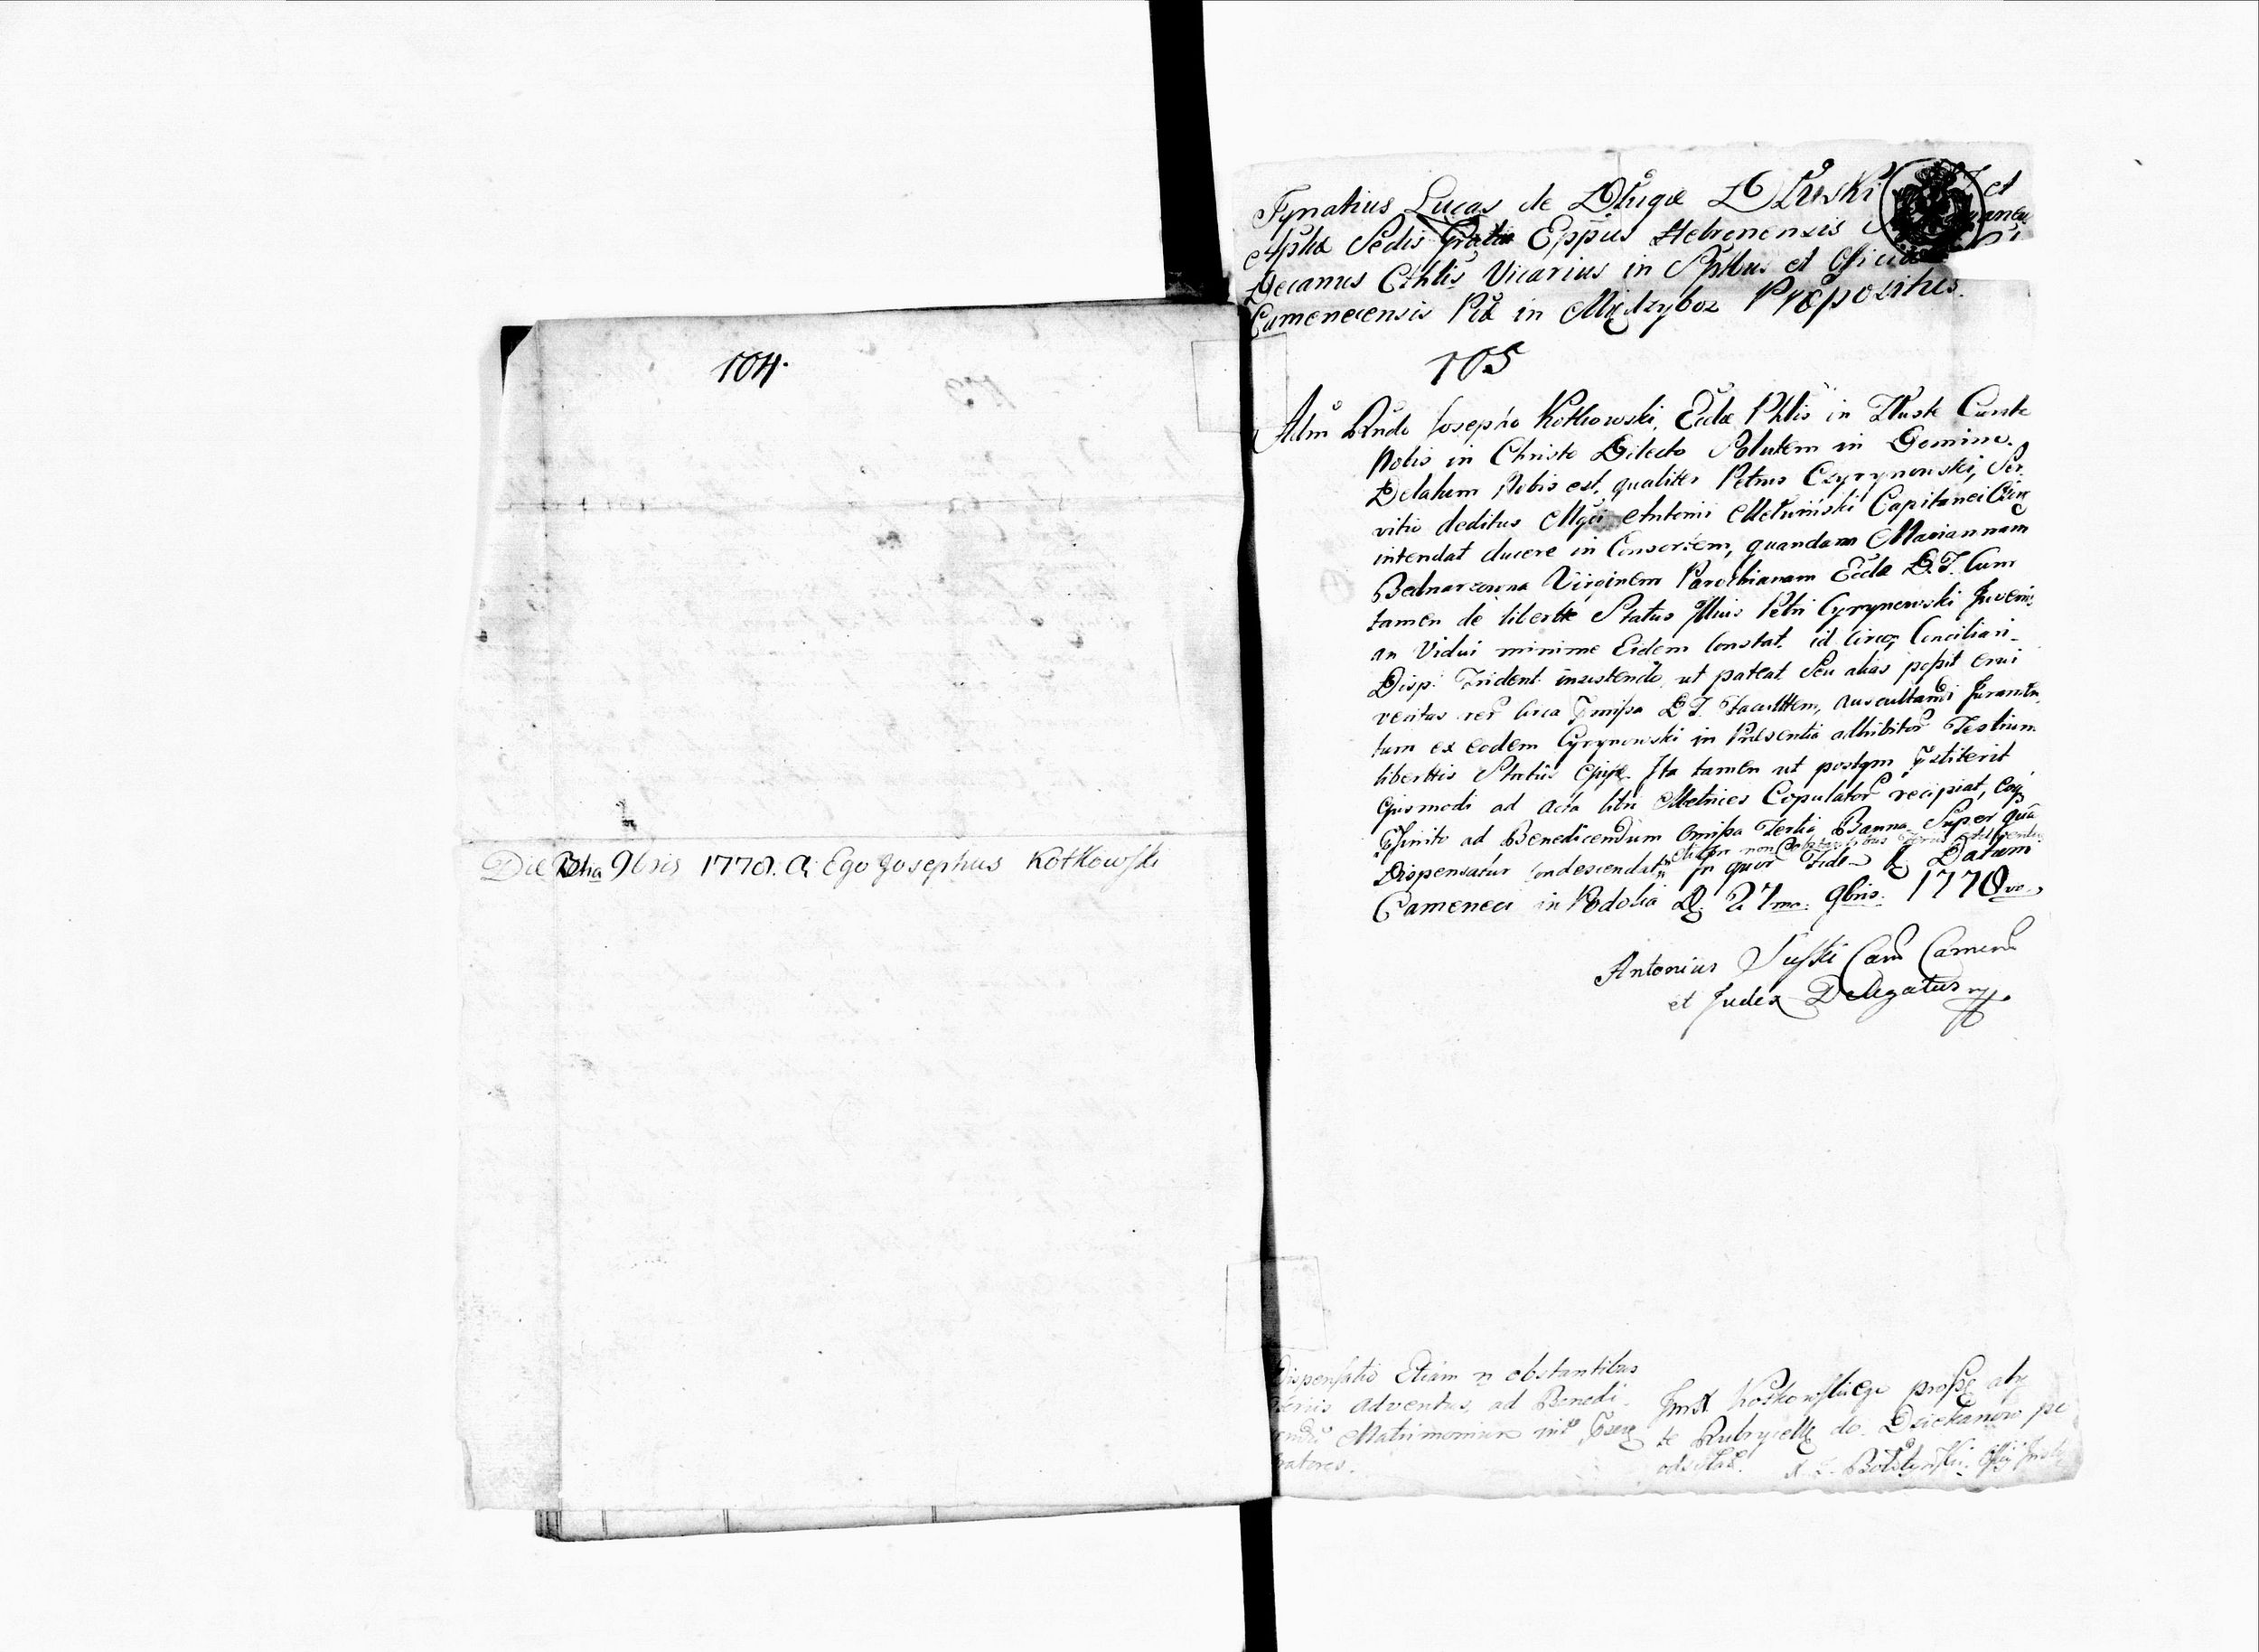 104.
Die 30tia 9bris 1778. A. Ego Josephus Kotkowski
Ignatius Lucas de Długie Dłuski et
Aplicæ Sedis Gratia Eppus Hebronensis
Decanus Cthlis Vicarius in Sptbus et Officialis
Camenecensis Plis in Międzyboz Præpositus.
105
Adm Rndo Josepho Kotkowski, Eccliæ Phlis in Tłuste Curato
Nobis in Christo Dilecto Salutem in Domino.
Delatum Nobis est, qualiter Petrus Czyrynowski, Ser
vitio deditus Mgci Antonii Capitanei
intendat ducere in Consortem, quandam Mariannam
Bednarzowna Virginem Parochianam Eccliæ D.T. Cum
tamen de libertte Status Illius Petri Cyrynowski Juvenis
an Vidui minime Eidem Constat. id circo Conciliari
Disp: Trident. insistendo, ut pateat Seu alias possit erui
veritas rei circa Pmissa D.T. facultttem, auscultandi Juramen
tum ex eodem Cyrynowski in Præsentia adhibitor Testium
liberttis Status Ejus. Ita tamen ut postqm Pstiterit
Ejusmodi ad acta libri Metrices Copulator recipiat, eoq
Pfinito ad Benedicendum omissa Tertia Banna Super qua
etiam non Obstantibus Feriis Adventus
Dispensatur condescendat. In quor Fidem &. Datum
Cameneci in Podolia D. 27ma: 9bris: 1778vo.
Antonius Suski Can Camen
et Judex Delegatus
Dispensatio Etiam n obstantibus
Feriis Adventus, ad Benedi
cendū Matrimonium int Psen
natores.
Jmx Kotkowskiego proszę aby
te Rubrycellę do Dziekanow po
odsyłał.